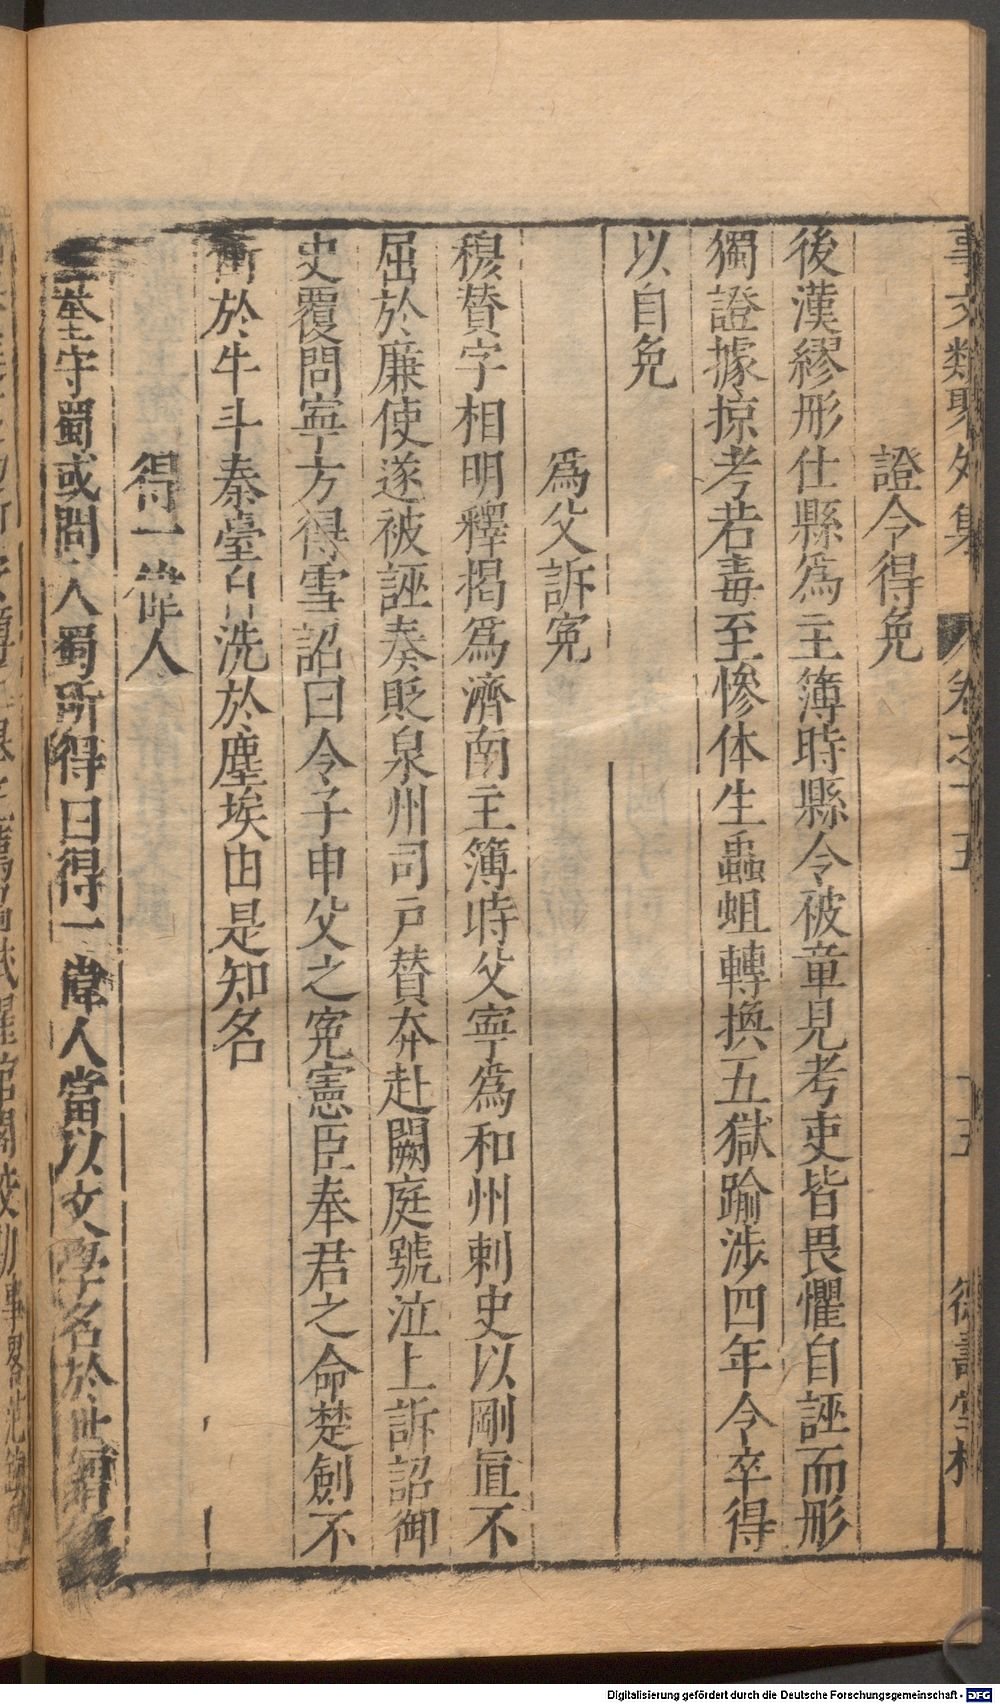 事文類聚外集 卷之十五 十五 德壽堂梓
證令得免
後漢繆彤仕縣爲主簿時縣令被章見考吏皆畏懼自誣而彤
獨證據掠考若毒至慘体生蟲蛆轉換五獄踰涉四年令卒得
以自免
爲父訴寃
穆賛字相明釋揭爲濟南主簿時父寧爲和州刺史以剛直不
屈於廉使遂被誣奏貶泉州司户賛奔赴闕庭號泣上訴詔御
史覆問寧方得雪詔曰令子申父之寃憲臣奉君之命楚劍不
衝於牛斗秦臺自洗於塵埃由是知名
得一偉人
守蜀或問入蜀所得曰得一偉人當以文學名於世
Digitalisierung gefördert durch die Deutsche Forschungsgemeinschaft - DFG